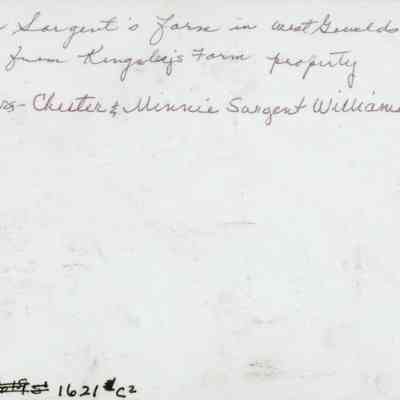 Sargent's farm in west Goulds
from Kingsley's Farm property
rs- Chester & Minnie Sargent Williams
1621 C2